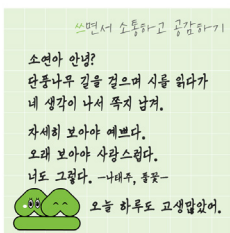 쓰면서 소통하고 공감하기
소연아 안녕?
단풍나무 길을 걸으며 시를 읽다가
네 생각이 나서 쪽지 남겨.
자세히 보아야 예쁘다.
오래 보아야 사랑스럽다.
너도 그렇다. -나태주, 풀꽃-
오늘 하루도 고생많았어.